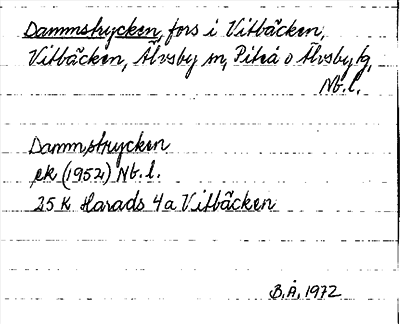 Dammstrycken, fors i Vitbäcken,
Vitbäcken, Älvsby sn, Piteå o Älvsby tg,
Nb.l.
Dammstrycken
ek (1952) Nb.l.
25 K Harads 4a Vitbäcken
B.Å, 1972